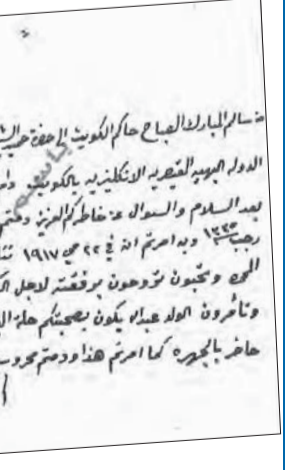 سالم المبارك الصباح حاكم الكويت الى حضرة حميد
الدولة البهيه القيصريه الانكليزيه بالكويت
بعد السلام والسوال عن خاطركم العزيز
رجب ١٣٣٥ وبه امرتم ان في ٢٢ مي ١٩١٧
وتحبون تروحون برفقته لاجل
وتأمرون الولد عبدالله يكون بصحبتكم
حاضر بالجهره كما امرتم هذا ودمتم محروسين